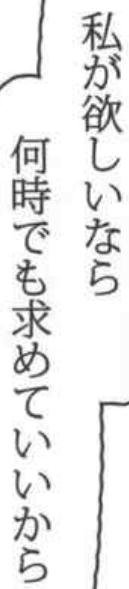 私が欲しいなら
何時でも求めていいから